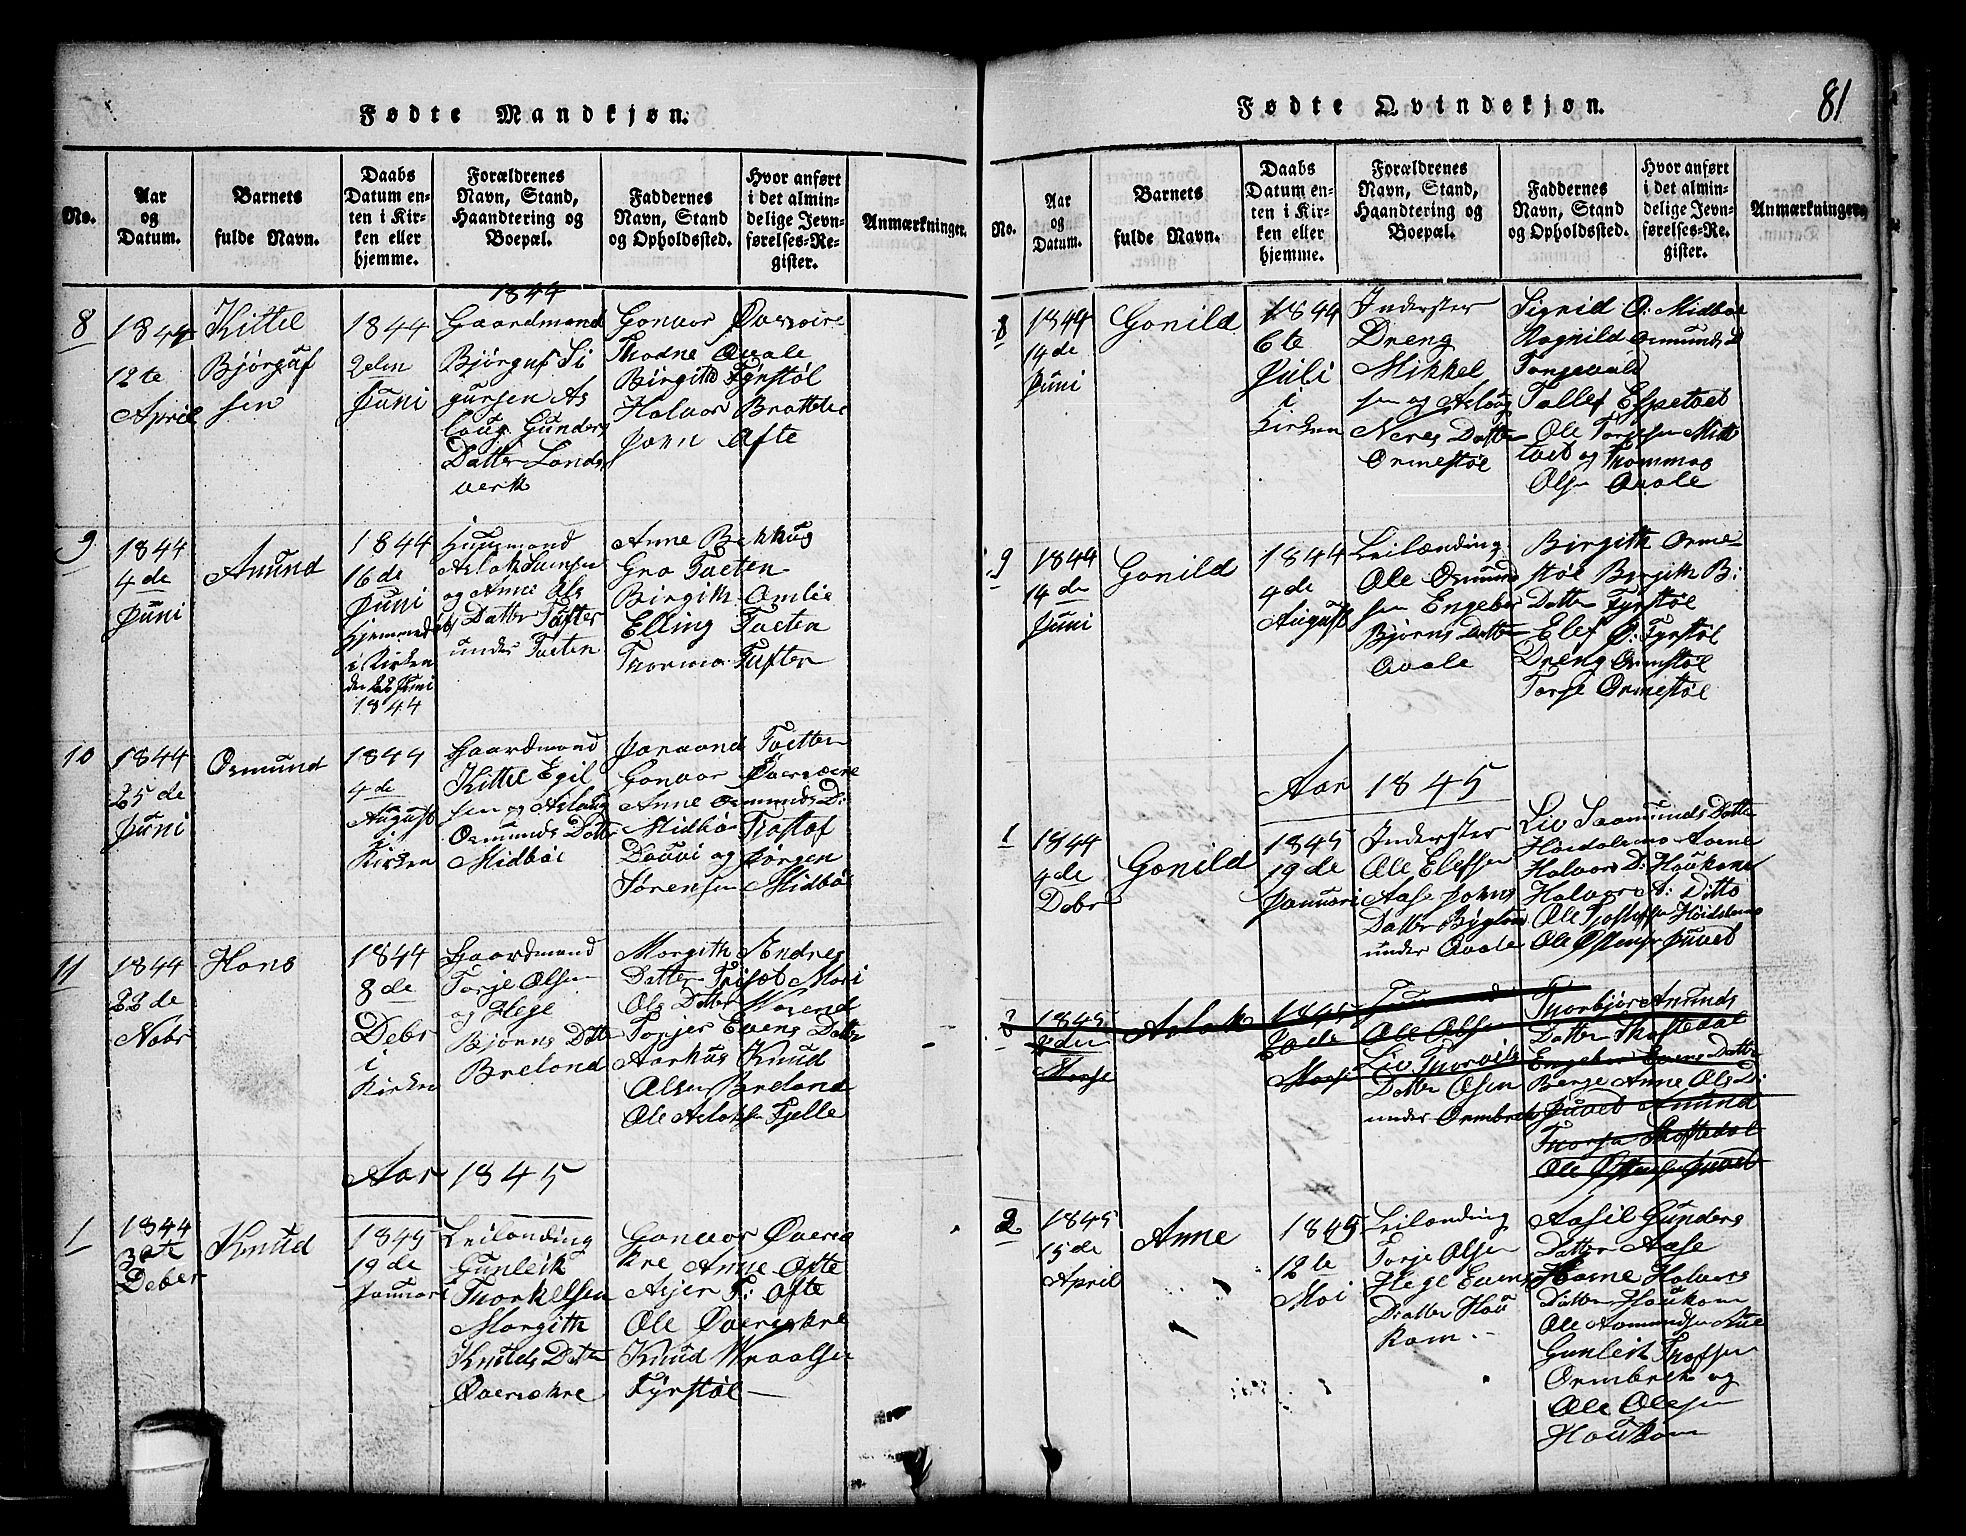 Fødte Mandkjøn.
No.
Aar
og
Datum.
Barnets
fulde Navn.
Daabs
Datum en-
ten i Kir-
ken eller
hjemme.
Forældrenes
Navn, Stand,
Haandtering og
Boepæl.
Faddernes
Navn, Stand
og Opholdssted.
Hvor anført
i det almin-
delige Jevn-
førelses-Re-
gister.
Anmærkninger.
1844
8
1844
12te
April
Kittel
Bjørguf
sen
1844
2den
Juni
Gaardmand
Bjørguf Si
gursen As
laug Gunders
Datter Lands
verk
Gonvor Øverøire
Thodne Qvale
Birgith Fyrstøl
Halvor Brattete
Jorn Ofte
9
1844
4de
Juni
Amund
1844
16de
Juni
hjemmedøbt
i Kirken
den 22 Juni
1844
Huusmand
Aslak
og Anne Ols
Datter Tufter
under Tveten
Anne Bekhus
Gro Tveten
Birgith Omlie
Elling Tveten
Tufter
10
1844
25de
Juni
Osmund
1844
4de
August
i
Kirken
Gaardmand
Kittel Egil
sen og Aslaug
Osmunds Datter
Midbøe
Tvetten
Gonvor Øverøere
Anne Osmunds D:
Midbøe
og Jørgen
Sørensen Midbøe
11
1844
22de
Nobr
Hans
1844
8de
Debr
i
Kirken
Gaardmand
Torje Olsen
og Hege
Bjørns Datter
Breland
Morgith Endres
Datter Mari
Ols Datter
Evens Datter
Aarhus Knud
Olsen Breland
Ole Aslaksen Fjelle
Aar 1845
1
1844
30te
Deber
Knud
1845
19de
Januari
Leilending
Gunleik
Thorkelsen
Morgith
Knuds Datter
Øversakre
Gonvor Øversa
kre Anne Ofte
Asjer T: Ofte
Ole Øversakre
Knud Wraalsen
Fyrstøl
Fødte Qvindekjøn.
81
No.
Aar
og
Datum.
Barnets
fulde Navn.
Daabs
Datum en-
ten i Kir-
ken eller
hjemme.
Forældrenes
Navn, Stand,
Haandtering og
Boepæl.
Faddernes
Navn, Stand
og Opholdssted.
Hvor anført
i det almin-
delige Jevn-
førelses-Re-
gister.
Anmærkninger
8
1844
14de
Juni
Gonild
1844
6te
Juli
i
Kirken
Inderster
Dreng
Mikkel
sen og Aslaug
Neres Datter
Ormestøl
Signild O: Midbøe
Ragnild Osmunds D
Tallef Espetvet
Ole Torjesen Midt
tvet og Thommas
Olsen Qvale
9
1844
14de
Juni
Gonild
1844
4de
August
Leilænding
Ole Osmund
sen Engebor
Bjørns Datter
Qvale
Birgith Orme
støl Birgith B:
Datter Fyrstøl
Elef O: Fyrstøl
Dreng Ormstøl
Torje Ormestøl
Aar 1845
1
1844
4de
Debr
Gonild
1845
19de
Januari
Inderster
Ole Elefsen
Aase Jorns
Datter
under Qvale
Liv Saamunds Datter
Høidalsmo
Halvors D: Haukom
Halvor A: Ditto
Ole Høidalsmo
Ole Østensen Juvet
2
1845
2den
Marsi
Aslak
1845
20de
Marsi
Ole Olsen
Liv Thorvils
Datter Olsen
under Ormbrek
Thorbjør Amunds
Datter Skoftedal
Engebor Evens Datter
Berge Anne Ols D:
Juvet Amund
Skoftedal
Ole Østensen Juvet
2
1845
15de
April
Anne
1845
12te
Mai
Leilending
Torje Olsen
Hege Evens
Datter Hou
kom
Aasil Gunders
Datter Aase
Halvors
Datter Houkom
Ole Aamundsen
Gunleik
Ormbrek og
Ole Olesen
Houkom